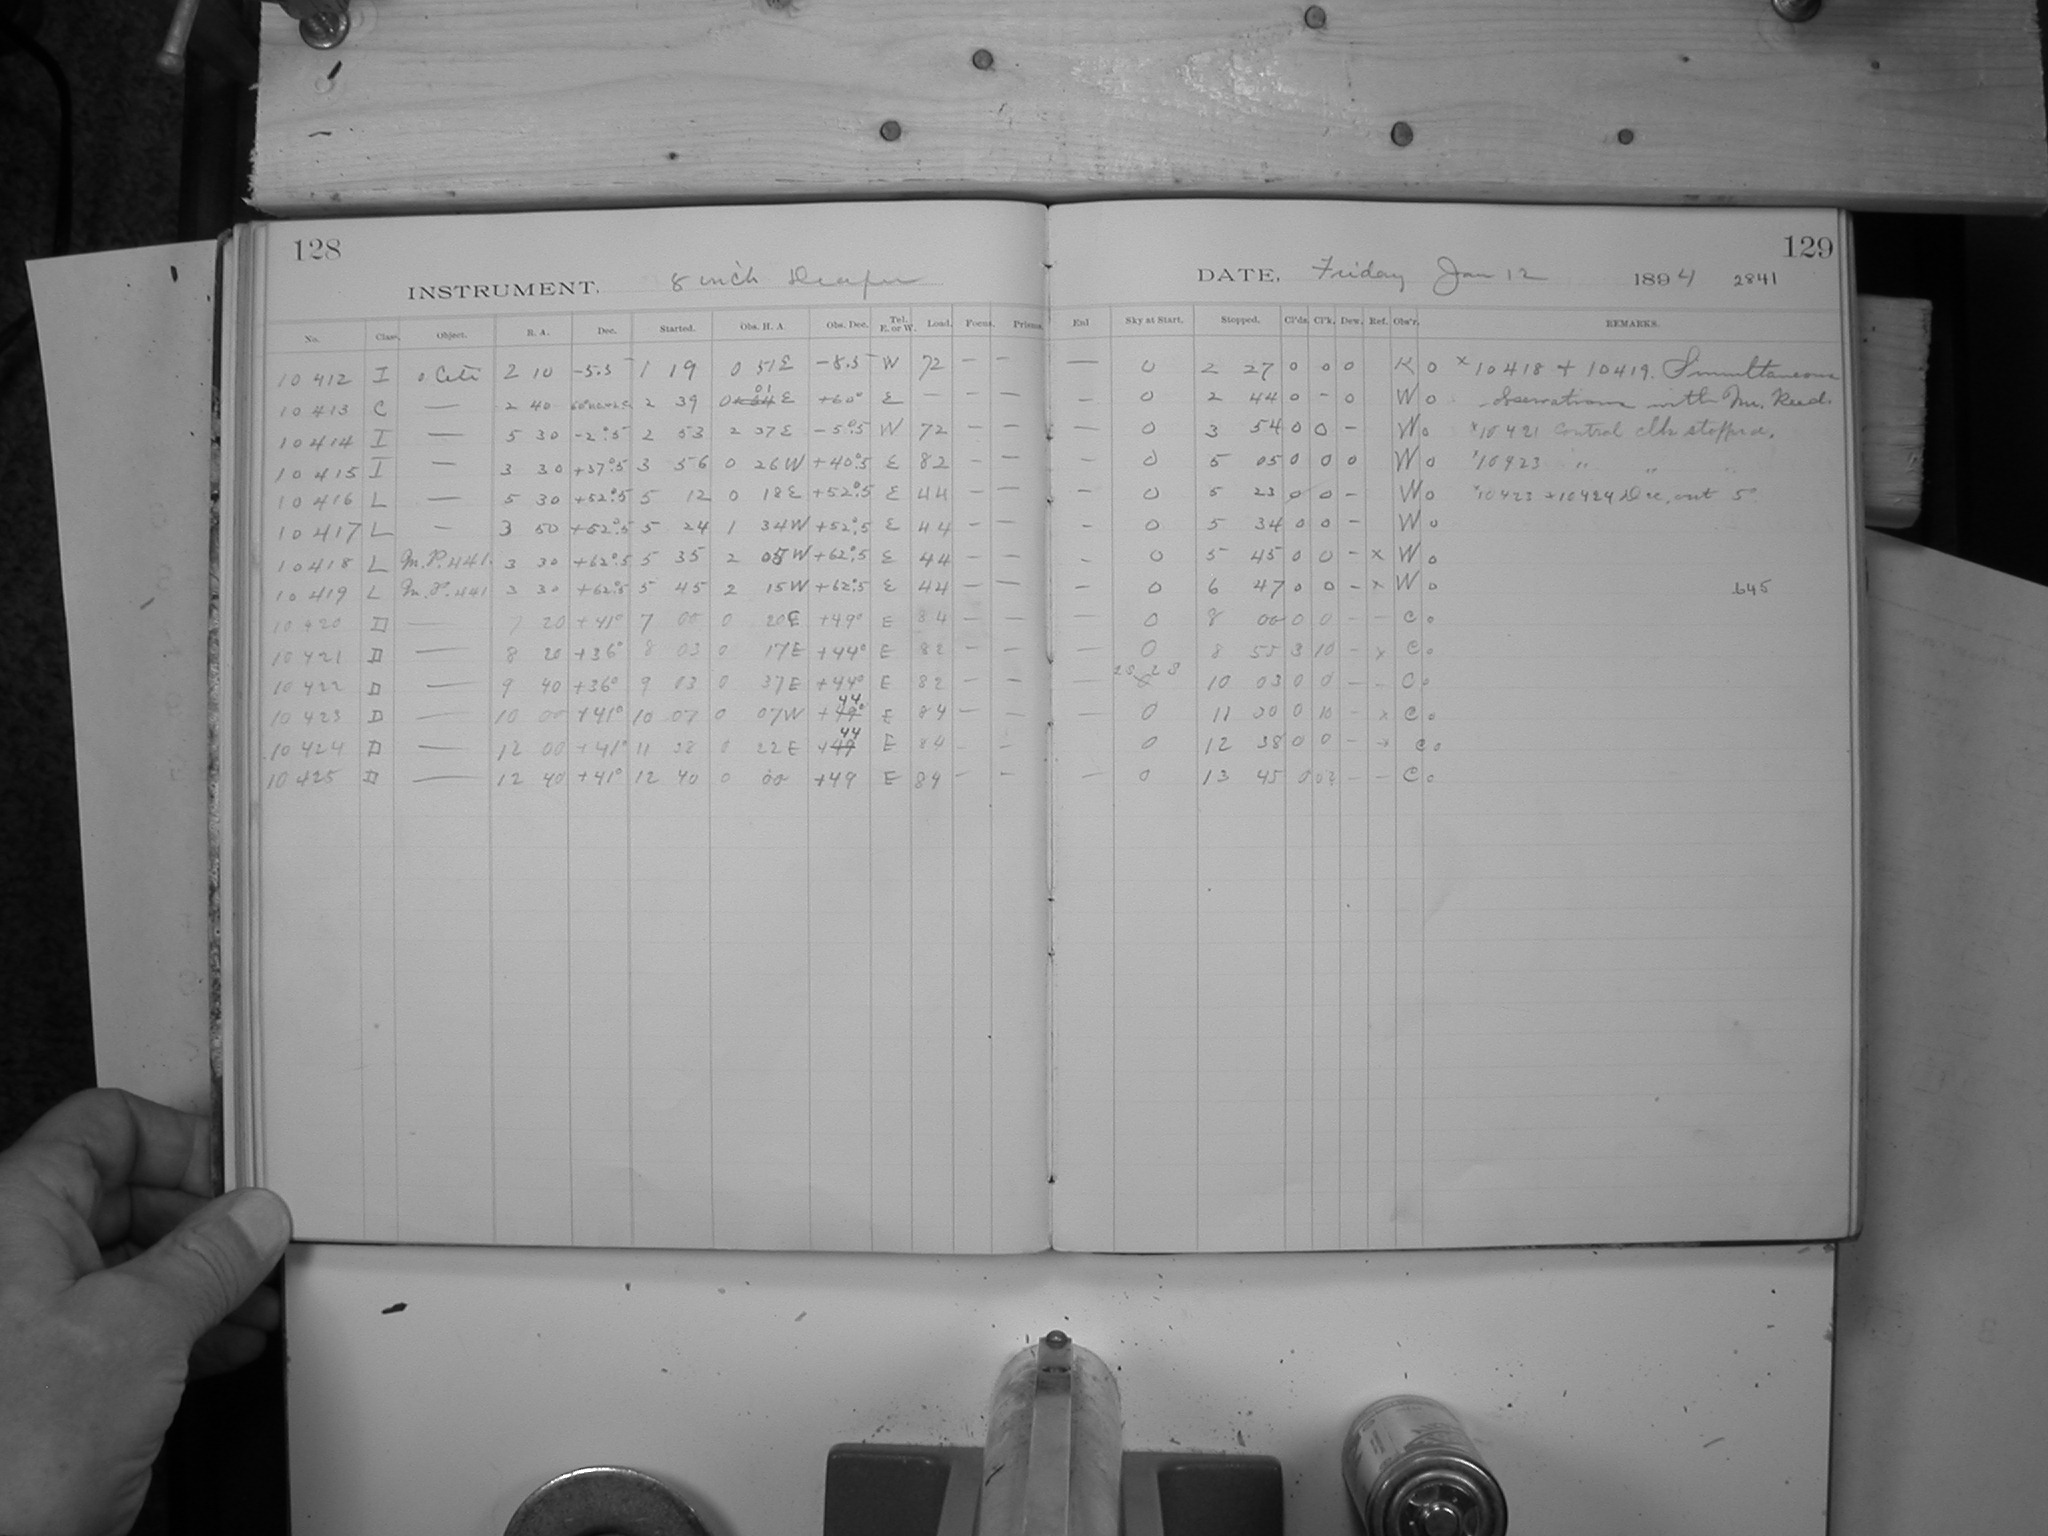 128
INSTRUMENT. 8 inch Draper
No. Class. Object. R. A. Dec. Started. Obs. H. A. Obs. Dec. Tel. E. or W. Load. Focus. Prisms.
10 412 I o Ceti 2 10 -5.5 1 19 0 51 E -5.5 W 72 — —
10 413 C — 2 40 2 39 0 01 E +60° E — — —
10 414 I — 5 30 -2°.5 2 53 2 37 E -5°.5 W 72 — —
10 415 I — 3 30 +37°.5 3 56 0 26 W +40°.5 E 82 — —
10 416 L — 5 30 +52°.5 5 12 0 18 E +52°.5 E 44 — —
10 417 L — 3 50 +52°.5 5 24 1 34 W +52°.5 E 44 — —
10 418 L M.P. 441. 3 30 +62°.5 5 35 2 05 W +62°.5 E 44 — —
10 419 L M.P. 441 3 30 +62°.5 5 45 2 15 W +62°.5 E 44 — —
10 420 D — 7 20 +41° 7 00 0 20 E +49° E 84 — —
10 421 D — 8 20 +36° 8 03 0 17 E +44° E 82 — —
10 422 D — 9 40 +36° 9 03 0 37 E +44° E 82 — —
10 423 D — 10 00 +41° 10 07 0 07 W +49° 44 E 84 — —
10 424 D — 12 00 +41° 11 38 0 22 E +49 44 E 84 — —
10 425 D — 12 40 +41° 12 40 0 00 +49 E 84 — —
129
DATE, Friday Jan 12 1894 2841
Enl Sky at Start. Stopped. Cl'ds. Cl'k. Dew. Ref. Obs'r. REMARKS.
— 0 2 27 0 0 0 K o × 10418 + 10419. Simultaneous
— 0 2 44 0 - 0 W o observations with Mr. Reed.
— 0 3 54 0 0 - W o × 10421 Control clk stopped.
— 0 5 05 0 0 0 W o × 10423 " " "
— 0 5 23 0 0 - W o × 10423 + 10424 Dec. out 5°
- 0 5 34 0 0 - W o
- 0 5 45 0 0 - × W o
— 0 6 47 0 0 - × W o 645
— 0 8 00 0 0 - - C o
— 0 8 55 3 10 - × C o
28 28
— 10 03 0 0 - - C o
— 0 11 00 0 10 - × C o
0 12 38 0 0 - × C o
— 0 13 45 0 0? - - C o